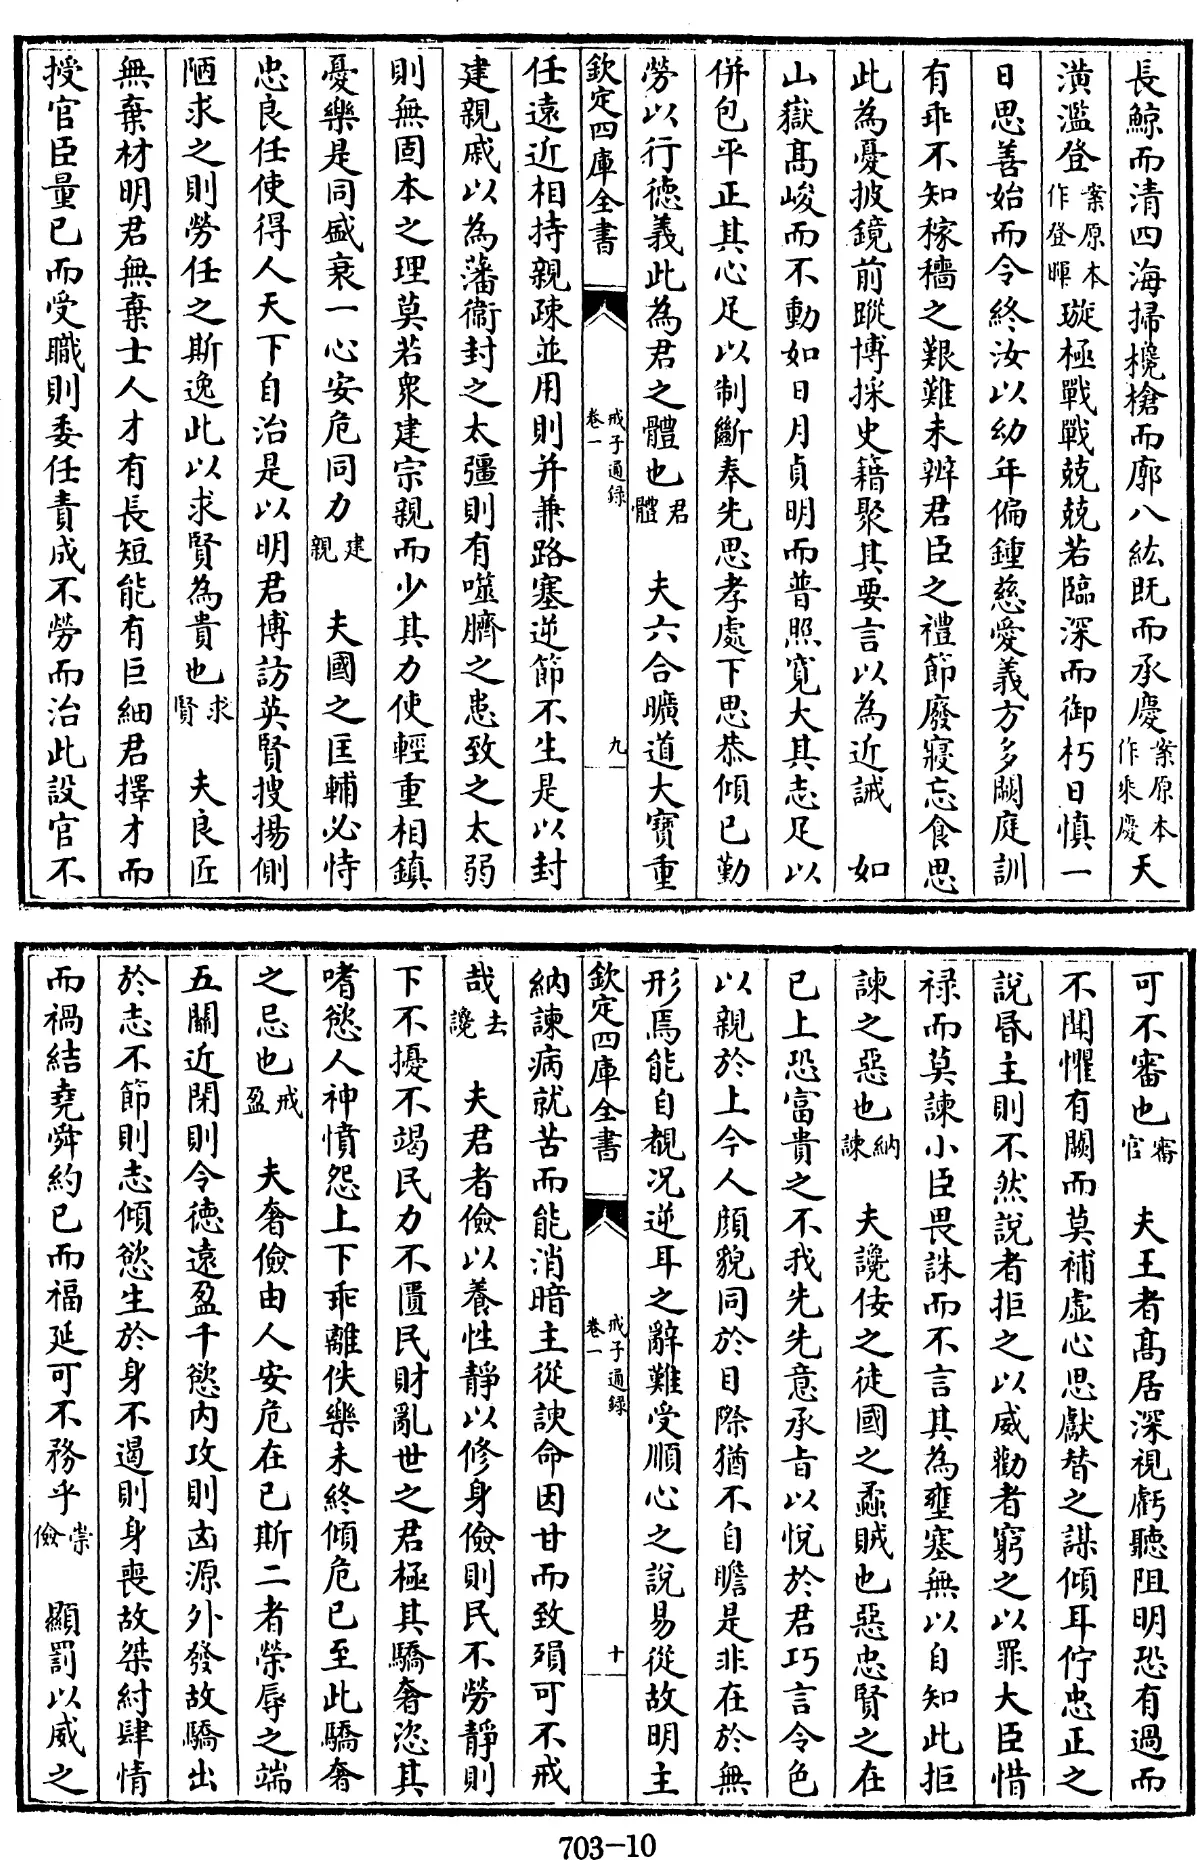 長鯨而清四海掃欃槍而廓八紘既而承慶案原本作乘慶天
潢濫登案原本作登暉璇極戰戰兢兢若臨深而御朽日慎一
日思善始而令終汝以幼年偏鍾慈愛義方多闕庭訓
有乖不知稼穡之艱難未辨君臣之禮節廢寢忘食思
此為憂披鏡前蹤博採史籍聚其要言以為近誡　如
山嶽髙峻而不動如日月貞明而普照寛大其志足以
併包平正其心足以制斷奉先思孝處下思恭傾已勤
勞以行德義此為君之體也君體　夫六合曠道大寶重
欽定四庫全書　戒子通録卷一　九
任遠近相持親疎並用則并兼路塞逆節不生是以封
建親戚以為藩衞封之太彊則有噬臍之患致之太弱
則無固本之理莫若衆建宗親而少其力使輕重相鎮
憂樂是同盛衰一心安危同力建親　夫國之匡輔必恃
忠良任使得人天下自治是以明君博訪英賢搜揚側
陋求之則勞任之斯逸此以求賢為貴也求賢　夫良匠
無棄材明君無棄士人才有長短能有巨細君擇才而
授官臣量已而受職則委任責成不勞而治此設官不
可不審也審官　夫王者髙居深視虧聽阻明恐有過而
不聞懼有闕而莫補虛心思獻替之謀傾耳佇忠正之
說昬主則不然說者拒之以威勸者窮之以罪大臣惜
禄而莫諫小臣畏誅而不言其為壅塞無以自知此拒
諫之惡也納諫　夫讒佞之徒國之蟊賊也惡忠賢之在
已上恐富貴之不我先先意承旨以悅於君巧言令色
以親於上今人顔貌同於目際猶不自瞻是非在於無
形焉能自覩况逆耳之辭難受順心之說易從故明主
欽定四庫全書　戒子通録卷一　十
納諫病就苦而能消暗主從諛命因甘而致殞可不戒
哉去讒　夫君者儉以養性靜以修身儉則民不勞靜則
下不擾不竭民力不匱民財亂世之君極其驕奢恣其
嗜慾人神憤怨上下乖離佚樂未終傾危已至此驕奢
之忌也戒盈　夫奢儉由人安危在已斯二者榮辱之端
五關近閉則令徳遠盈千慾内攻則凶源外發故驕出
於志不節則志傾慾生於身不遏則身喪故桀紂肆情
而禍結堯舜約已而福延可不務乎崇儉　顯罰以威之
703-10